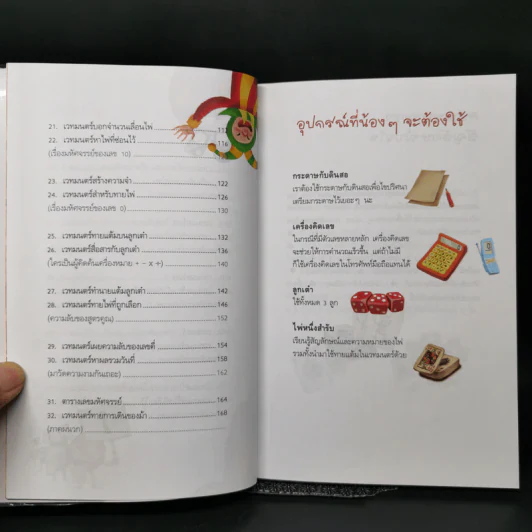 21. เวทมนตร์บอกจำนวนเลื่อนไพ่ 112
22. เวทมนตร์หาไพ่ที่ซ่อนไว้ 116
(เรื่องมหัศจรรย์ของเลข 10)
23. เวทมนตร์สร้างความจำ 122
24. เวทมนตร์สำหรับทายไพ่ 126
(เรื่องมหัศจรรย์ของเลข 0) 130
25. เวทมนตร์ทายแต้มบนลูกเต๋า 132
26. เวทมนตร์สื่อสารกับลูกเต๋า 136
(ใครเป็นผู้คิดค้นเครื่องหมาย + − × ÷) 140
27. เวทมนตร์ทำนายแต้มลูกเต๋า 142
28. เวทมนตร์ทายไพ่ที่ถูกเลือก 146
(ความลับของสูตรคูณ) 152
29. เวทมนตร์เผยความลับของเลขคี่ 154
30. เวทมนตร์หาผลรวมวันที่ 158
(มาวัดความงามกันเถอะ) 162
31. ตารางเลขมหัศจรรย์ 164
32. เวทมนตร์ทายการเดินของม้า 168
(ภาคผนวก)
อุปกรณ์ที่น้อง ๆ จะต้องใช้
กระดาษกับดินสอ
เราต้องใช้กระดาษกับดินสอเพื่อไขปริศนา
เตรียมกระดาษไว้เยอะๆ นะ
เครื่องคิดเลข
ในกรณีที่มีตัวเลขหลายหลัก เครื่องคิดเลข
จะช่วยให้การคำนวณเร็วขึ้น แต่ถ้าไม่มี
ก็ใช้เครื่องคิดเลขในโทรศัพท์มือถือแทนได้
ลูกเต๋า
ใช้ทั้งหมด 3 ลูก
ไพ่หนึ่งสำรับ
เรียนรู้สัญลักษณ์และความหมายของไพ่
รวมทั้งนำมาใช้ทายแต้มในเวทมนตร์ด้วย